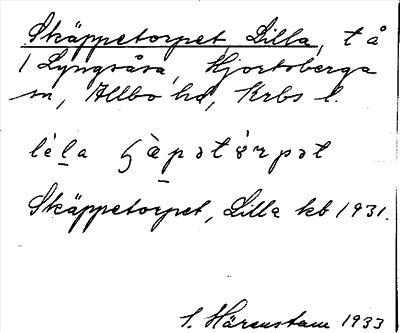 Skäppetorpet, Lilla, t å
1 Lyngsåsa, Hjortsberga
sn, Allbo hd, Krbs l.
Skäppetorpet, Lilla kb 1931.
S. Härenstam 1933